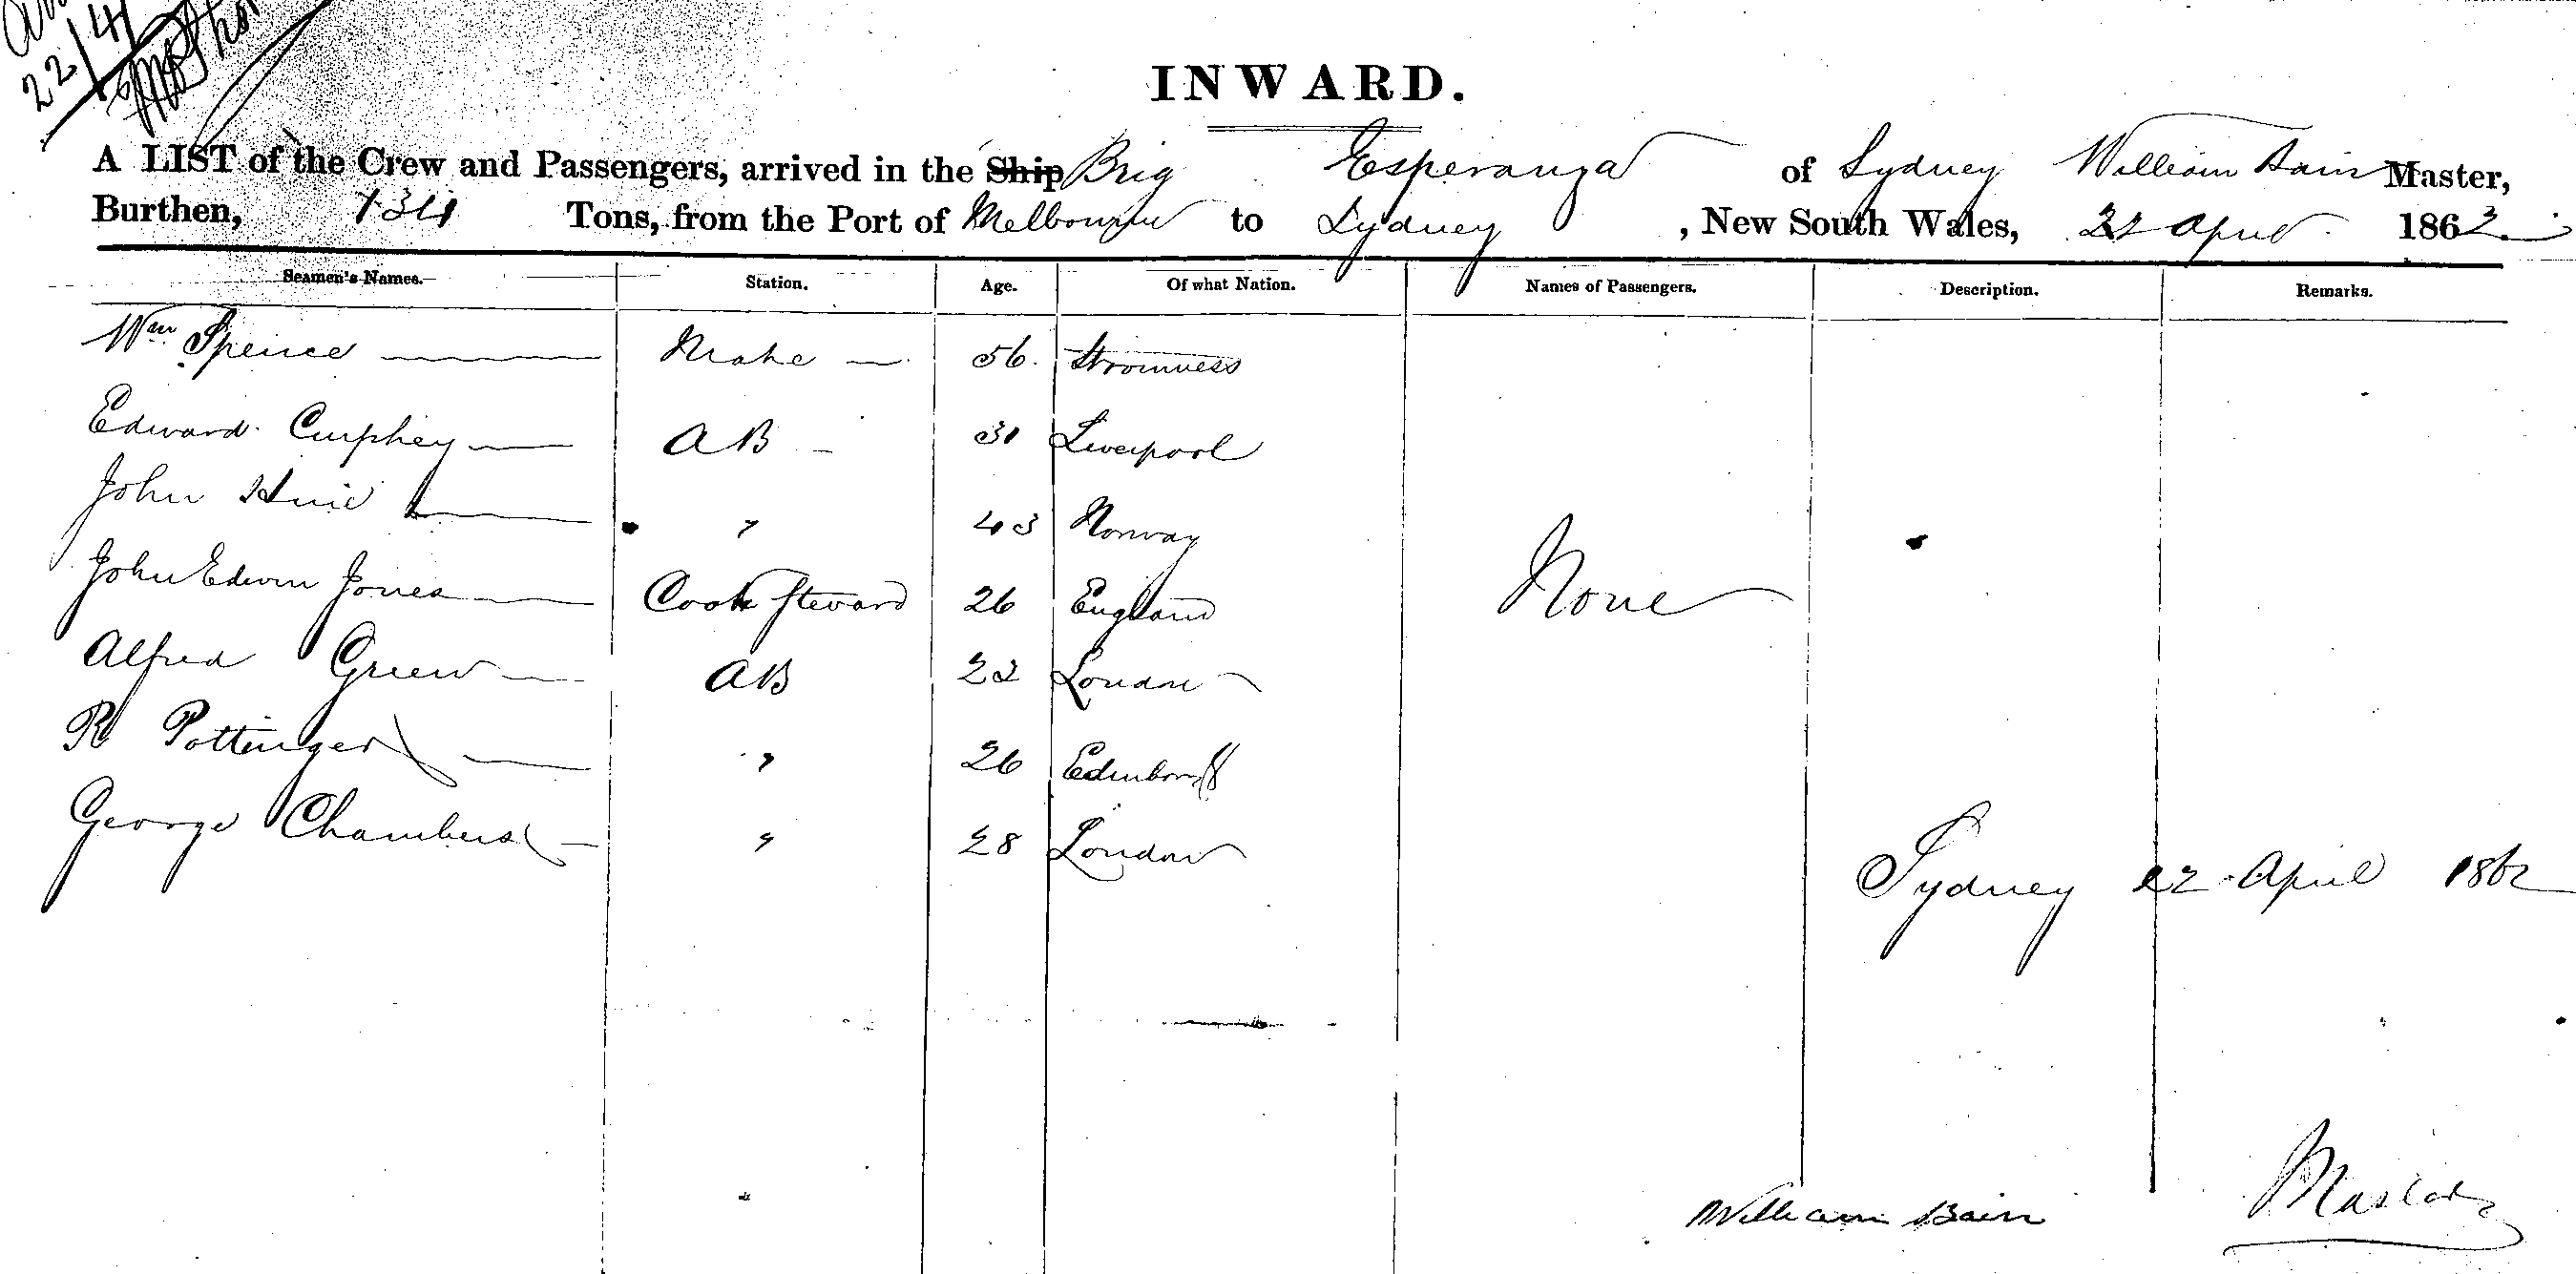 22/4
INWARD.
A LIST of the Crew and Passengers, arrived in the Ship Brig Esperanza of Sydney William Bain Master,
Burthen, 134 Tons, from the Port of Melbourne to Sydney, New South Wales, 22 April 1862
Seamen's Names. Station. Age. Of what Nation. Names of Passengers. Description. Remarks.
Wm Spence Mate 56 Stromness
Edward Curphey AB 31 Liverpool
John " 43 Norway
John Edwin Jones Cook Steward 26 England None
Alfred Green AB 22 London
R Pottinger " 26 Edinboro
George Chambers " 28 London
Sydney 22 April 1862
William Bain Master